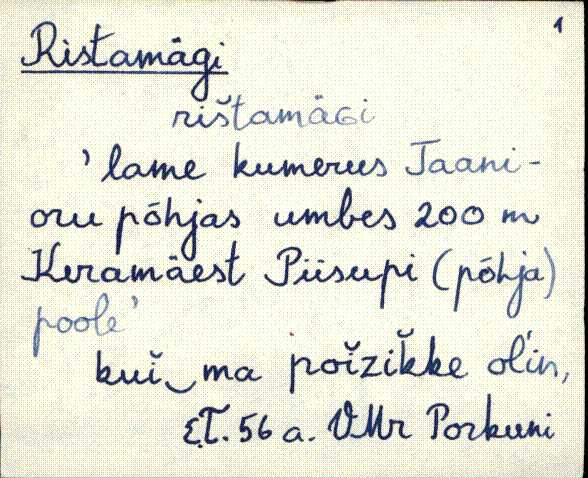 1
Ristamägi
rištamäɢi
'lame kumerus Jaani-
oru põhjas umbes 200 m
Keramäest Piisupi (põhja)
poole'
kuĭ‿ma poĭzik̆ke ol'in,
E.T. 56 a. VMr Porkuni